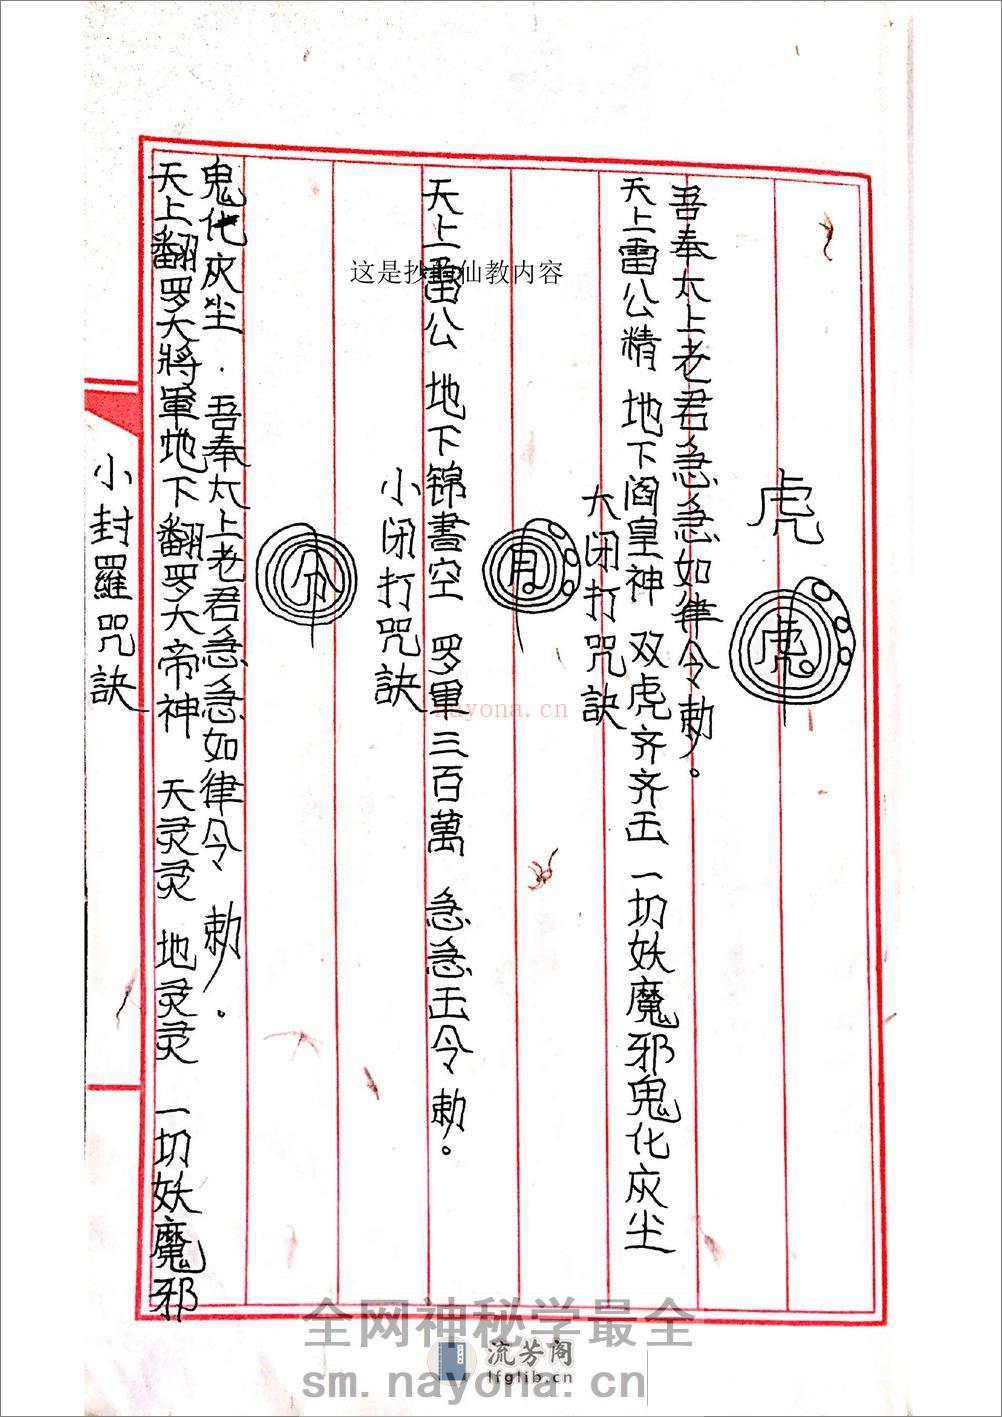 虎
虎
吾奉太上老君急急如律令勅。
天上雷公精 地下阎皇神 双虎齐齐玉 一切妖魔邪鬼化灰尘
大闭打咒訣
天上雷公 地下锦書空 罗里三百萬 急急玉令勅。
小闭打咒訣
鬼化灰尘.吾奉太上老君急急如律令 勅。
天上翻罗大將軍地下翻罗大帝神 天灵灵 地灵灵 一切妖魔邪
小封羅咒訣
这是抄 仙教内容
nayona.cn
全网神秘学最全
流芳阁
lfglib.cn
sm.nayona.cn